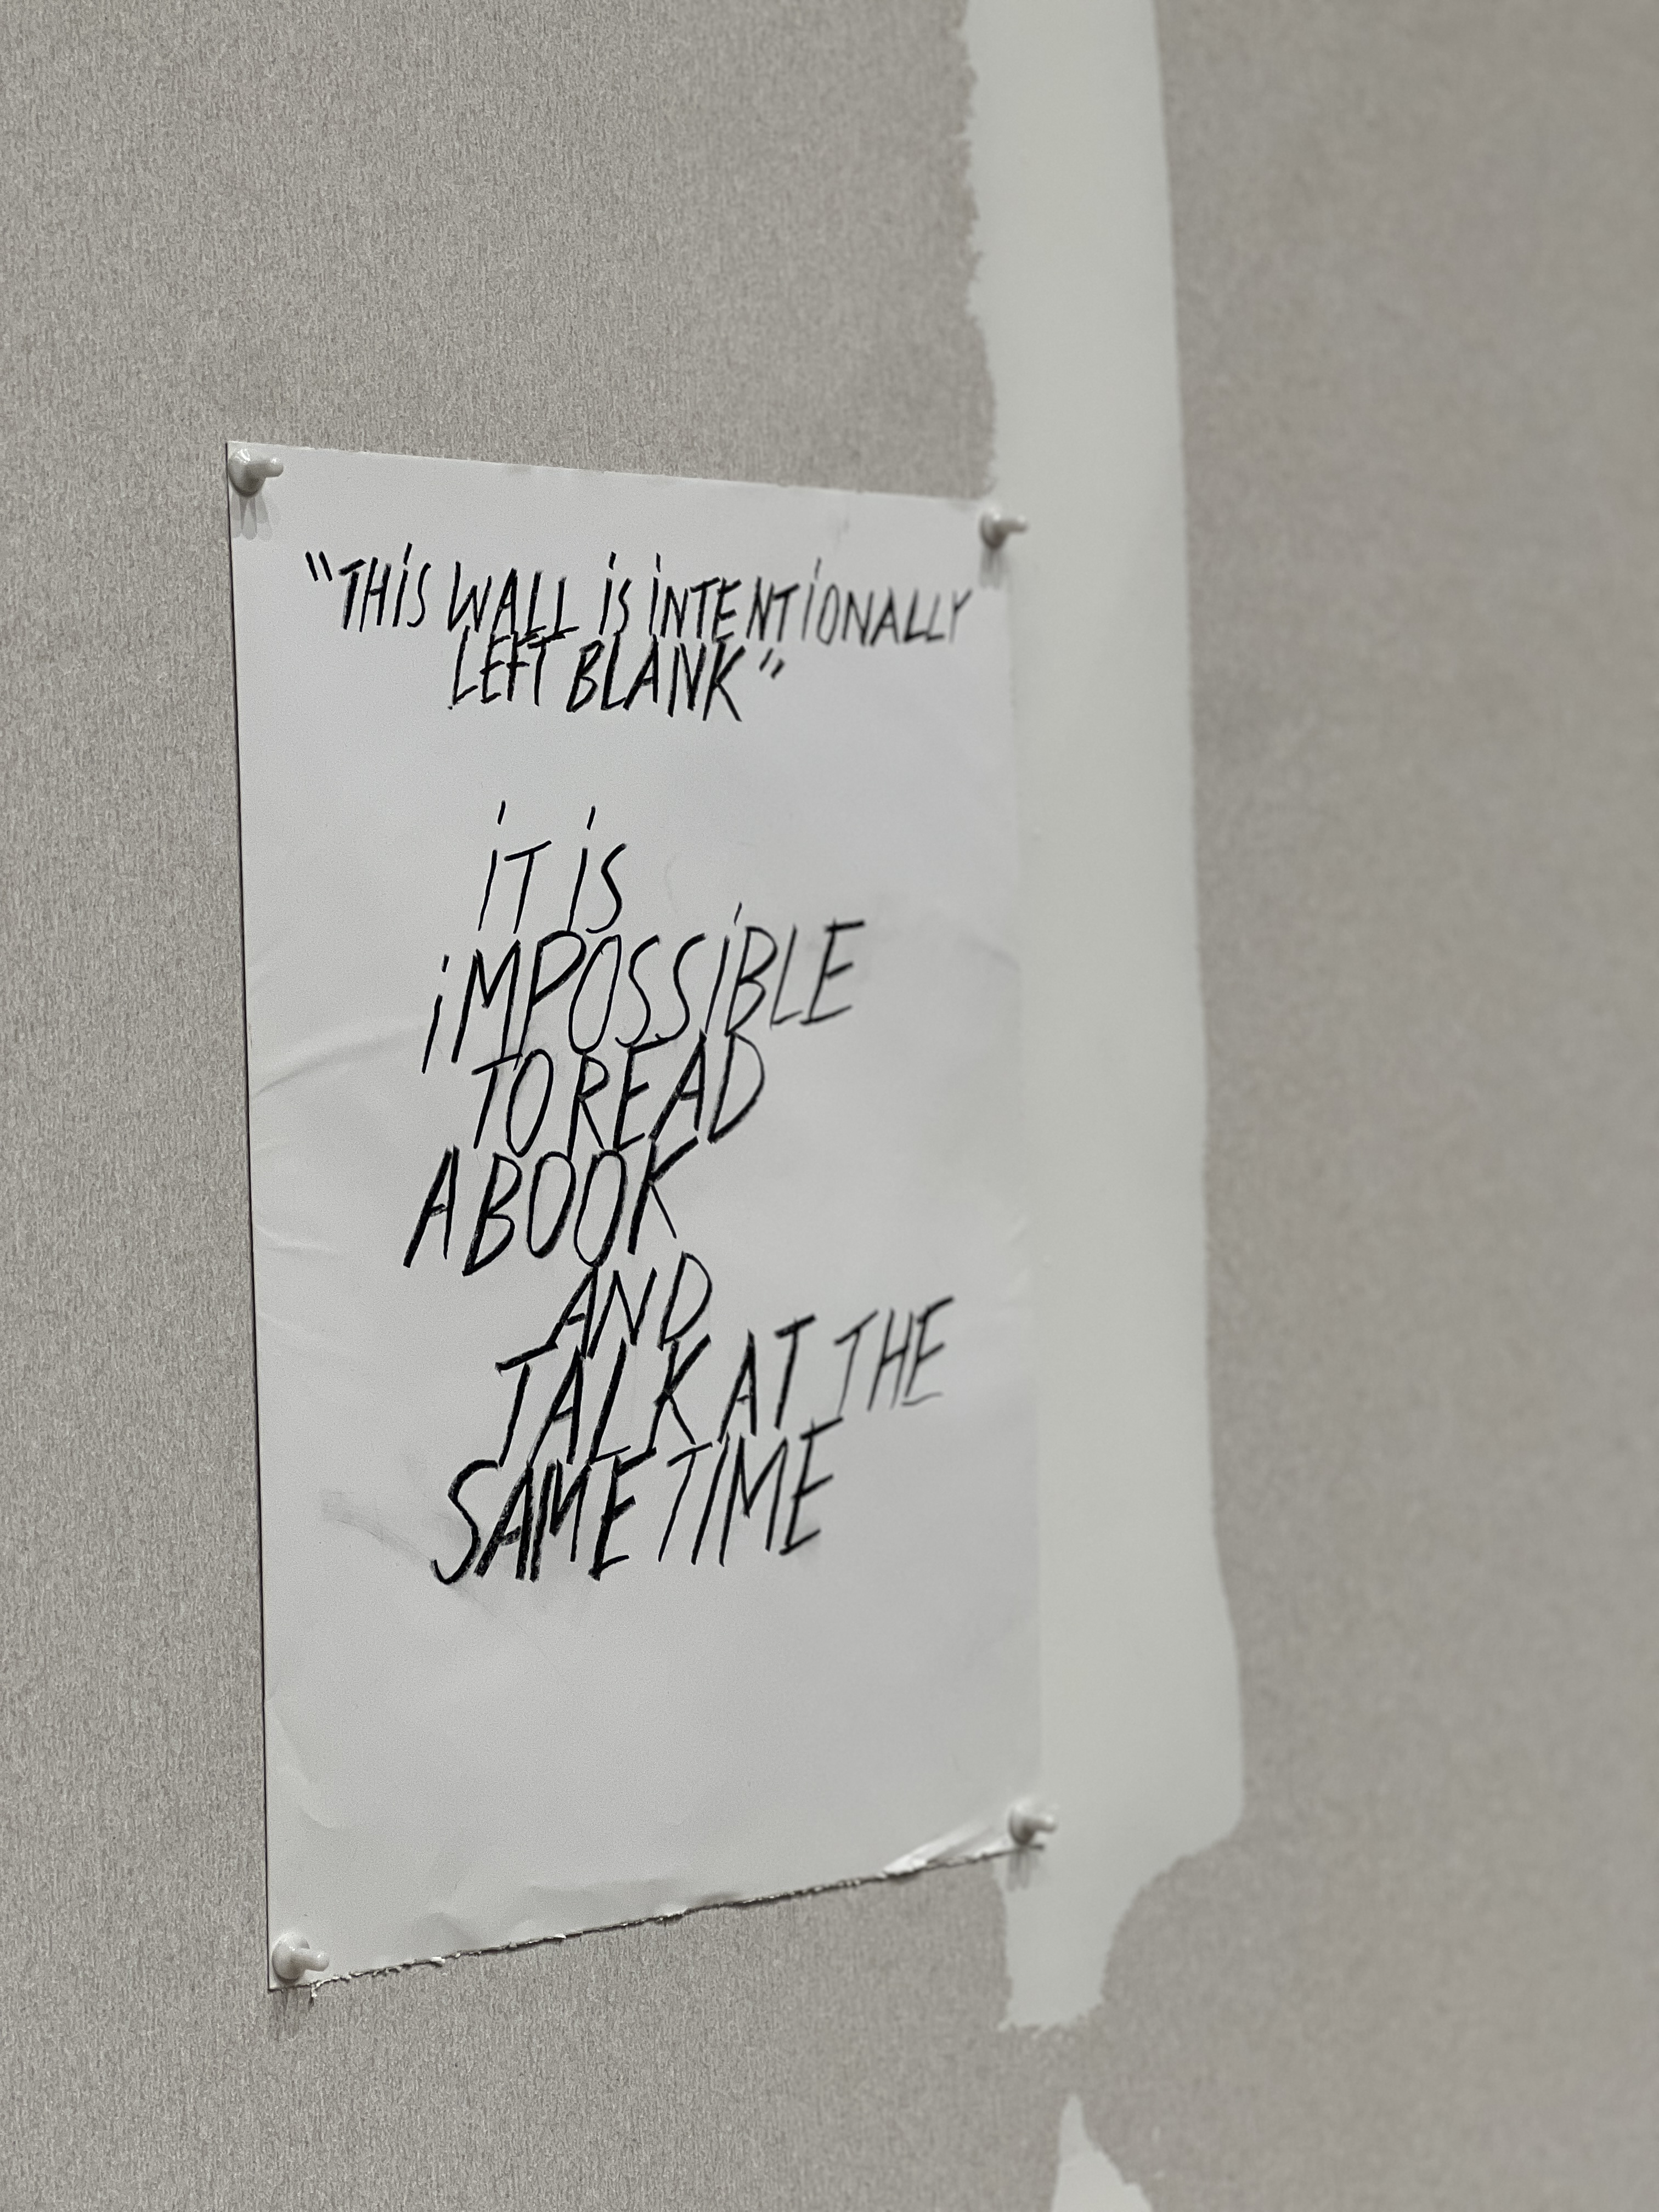 "THiS WALL iS iNTENTiONALLY
LEFT BLANK"
iT iS
iMPOSSiBLE
TO READ
A BOOK
AND
TALK AT THE
SAME TIME